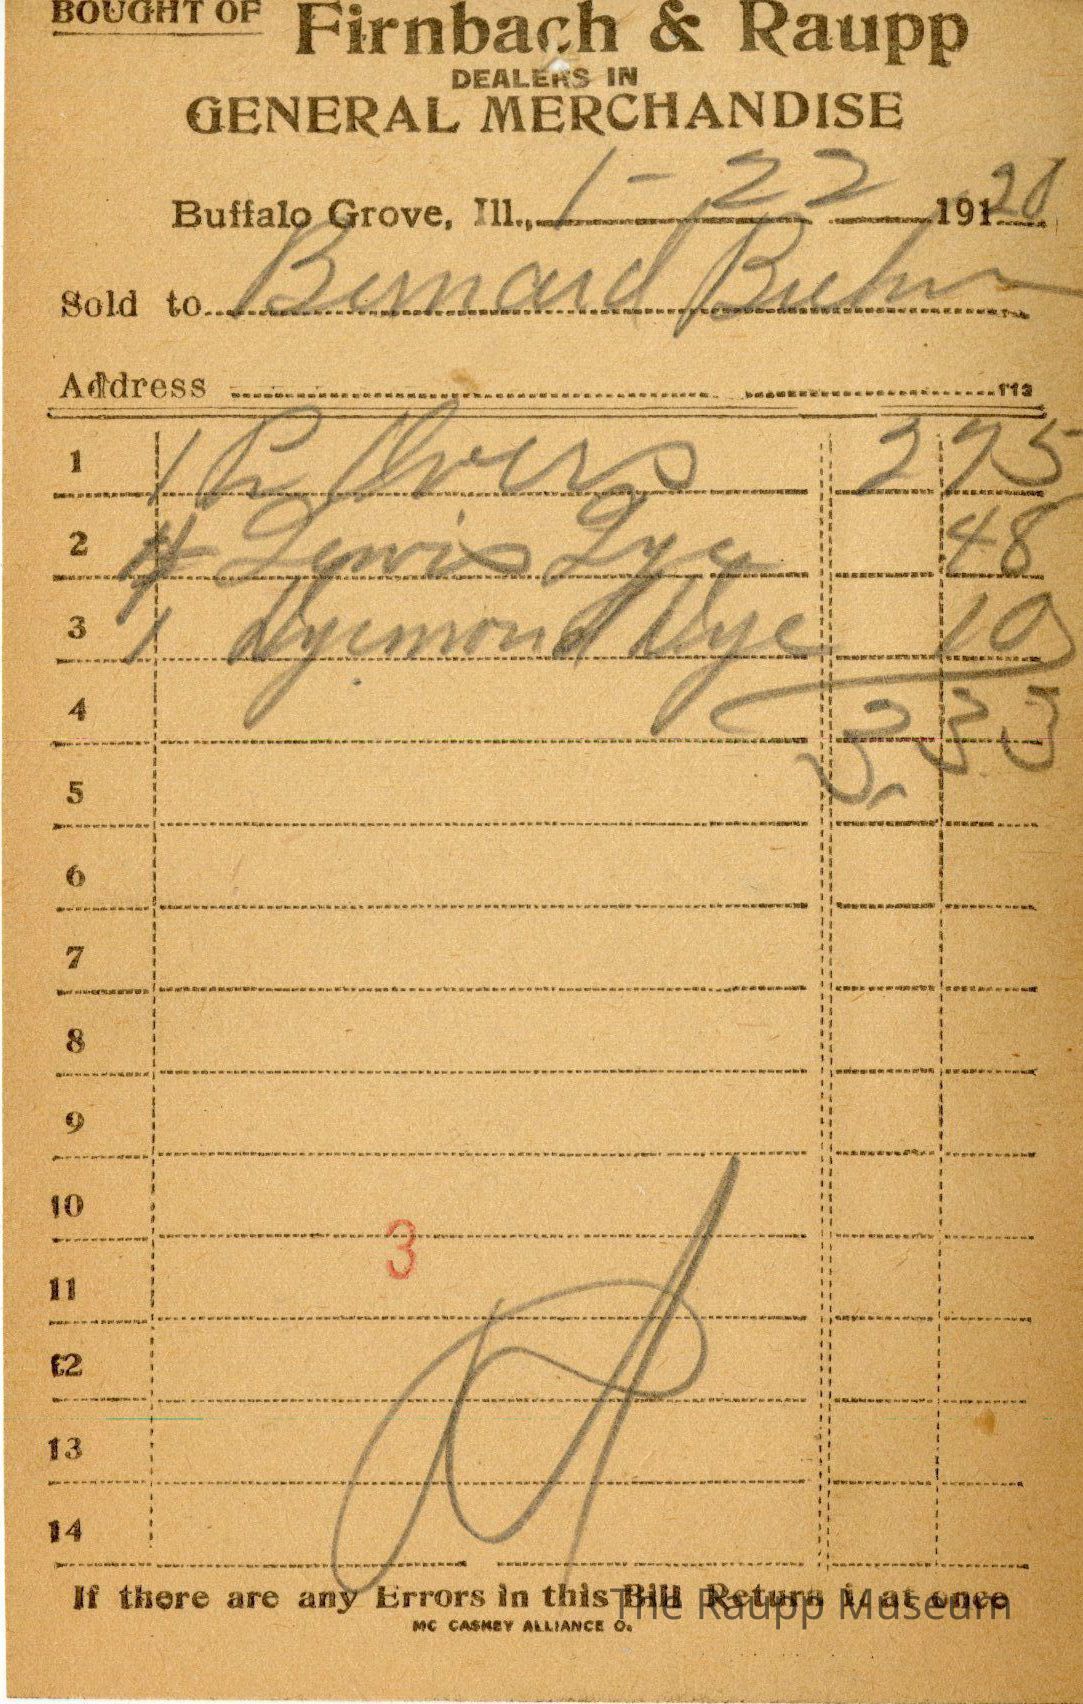 BOUGHT OF Firnbach & Raupp
DEALERS IN
GENERAL MERCHANDISE
Buffalo Grove, Ill., 1-22 191 20
Sold to Bernard Buehr
Address 113
1 1 Pr Overs 2 75
2 4 Lewis Lye 48
3 1 Dyemond Dye 10
4 3 33
5 3.
6
7
8
9
10
3
11
12
13
14
If there are any Errors in this Bill Return it at once
The Raupp Museum
MC CASKEY ALLIANCE O.